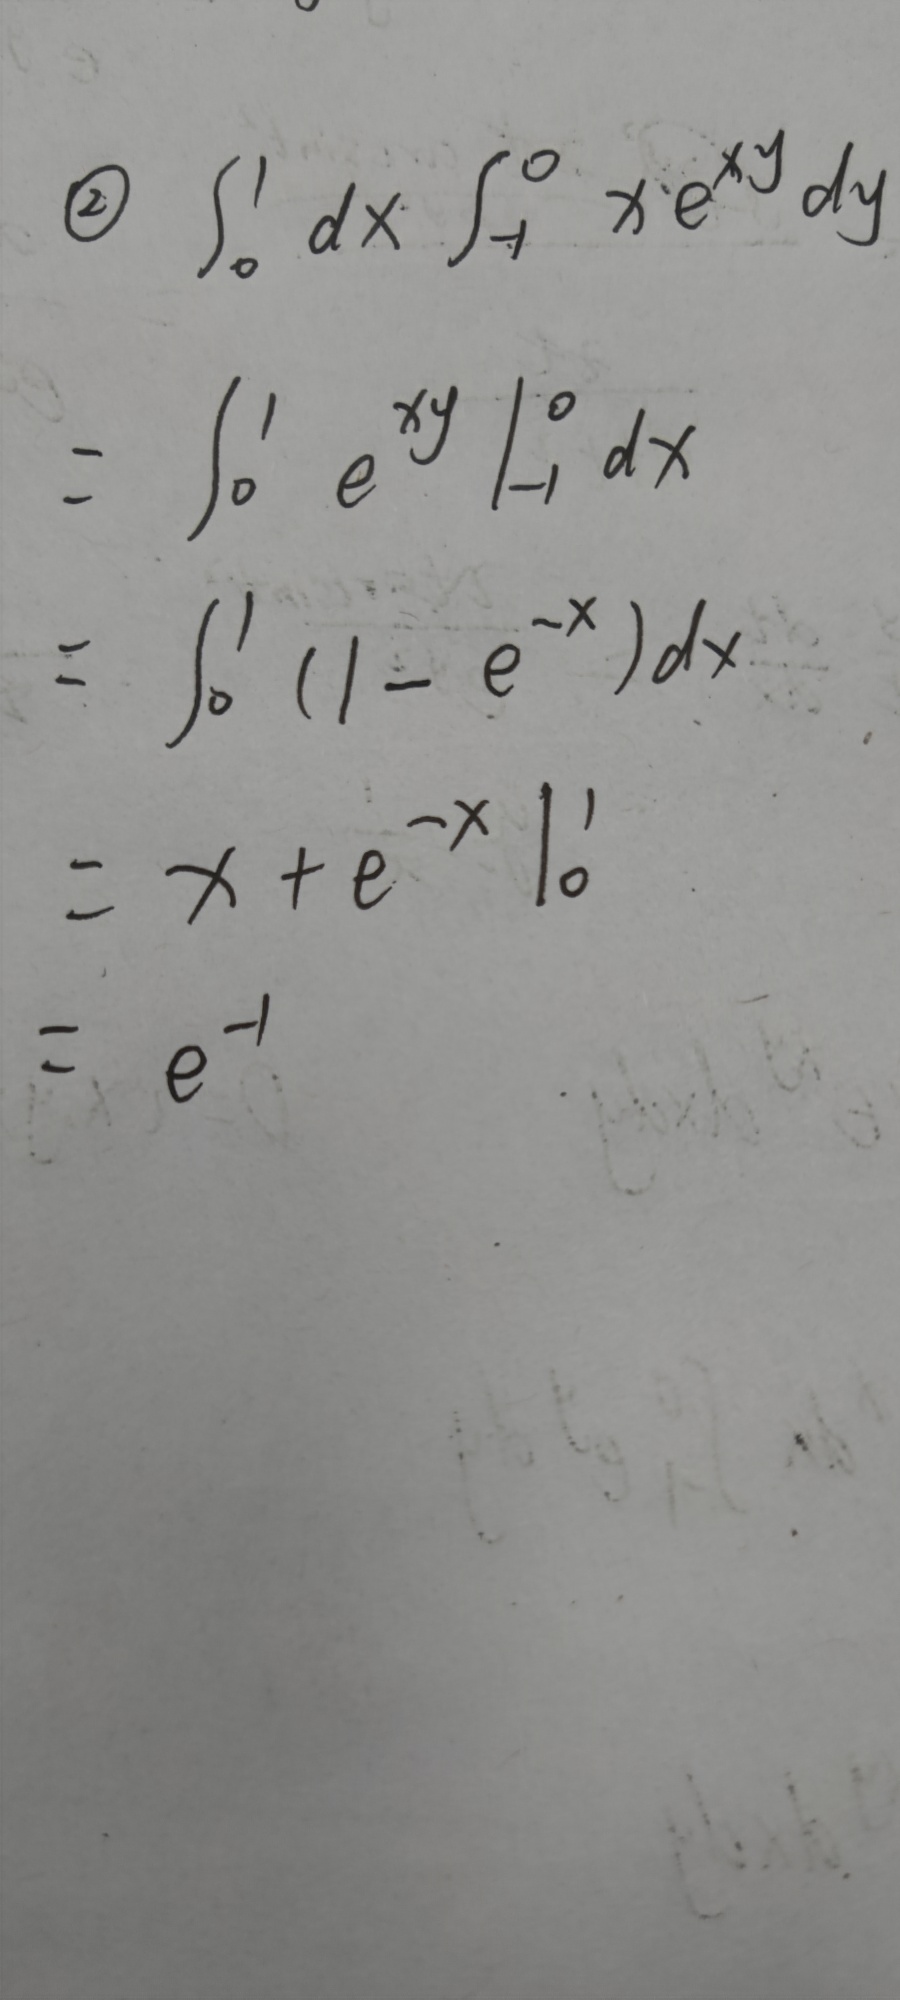 ② ∫₀¹ dx ∫₋₁⁰ x e^{xy} dy
= ∫₀¹ e^{xy} |₋₁⁰ dx
= ∫₀¹ (1 - e^{-x}) dx
= x + e^{-x} |₀¹
= e^{-1}